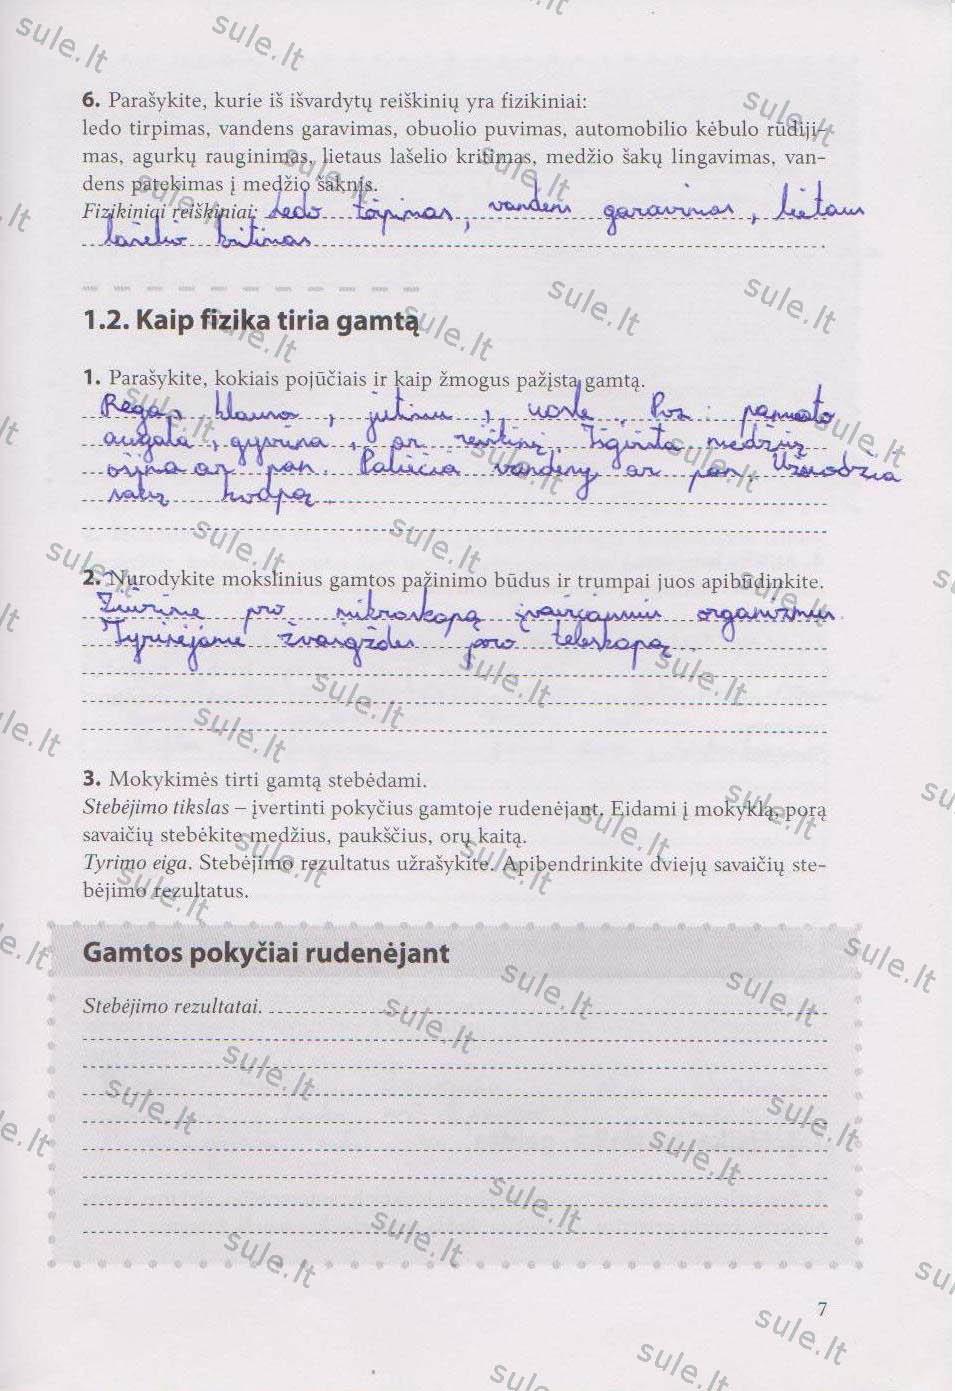 6. Parašykite, kurie iš išvardytų reiškinių yra fizikiniai:
ledo tirpimas, vandens garavimas, obuolio puvimas, automobilio kėbulo rūdiji-
mas, agurkų rauginimas, lietaus lašelio kritimas, medžio šakų lingavimas, van-
dens patekimas į medžio šaknis.
Fizikiniai reiškiniai: Ledo tirpimas, vandens garavimas, lietaus
lašelio kritimas
1.2. Kaip fizika tiria gamtą
1. Parašykite, kokiais pojūčiais ir kaip žmogus pažįsta gamtą.
Regos, klausa, jutimu, uosle. Pvz: pamato
augalą, gyvūną, ar reiškinį. Išgirsta medžių
ošimą ar pan. Paliečia vandenį ar pan. Užuodžia
sakų kvapą.
2. Nurodykite mokslinius gamtos pažinimo būdus ir trumpai juos apibūdinkite.
Žiūrime pro mikroskopą įvairiausius organizmus.
Tyrinėjame žvaigždes pro teleskopą.
3. Mokykimės tirti gamtą stebėdami.
Stebėjimo tikslas – įvertinti pokyčius gamtoje rudenėjant. Eidami į mokyklą, porą
savaičių stebėkite medžius, paukščius, orų kaitą.
Tyrimo eiga. Stebėjimo rezultatus užrašykite. Apibendrinkite dviejų savaičių ste-
bėjimo rezultatus.
Gamtos pokyčiai rudenėjant
Stebėjimo rezultatai.
7